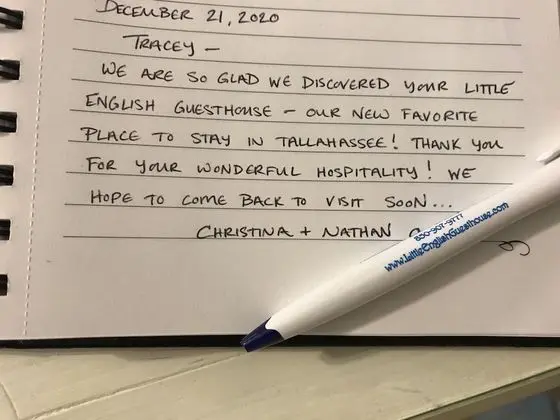 DECEMBER 21, 2020
TRACEY —
WE ARE SO GLAD WE DISCOVERED YOUR LITTLE
ENGLISH GUESTHOUSE – OUR NEW FAVORITE
PLACE TO STAY IN TALLAHASSEE! THANK YOU
FOR YOUR WONDERFUL HOSPITALITY! WE
HOPE TO COME BACK TO VISIT SOON...
CHRISTINA + NATHAN
850-907-9777
www.LittleEnglishGuesthouse.com